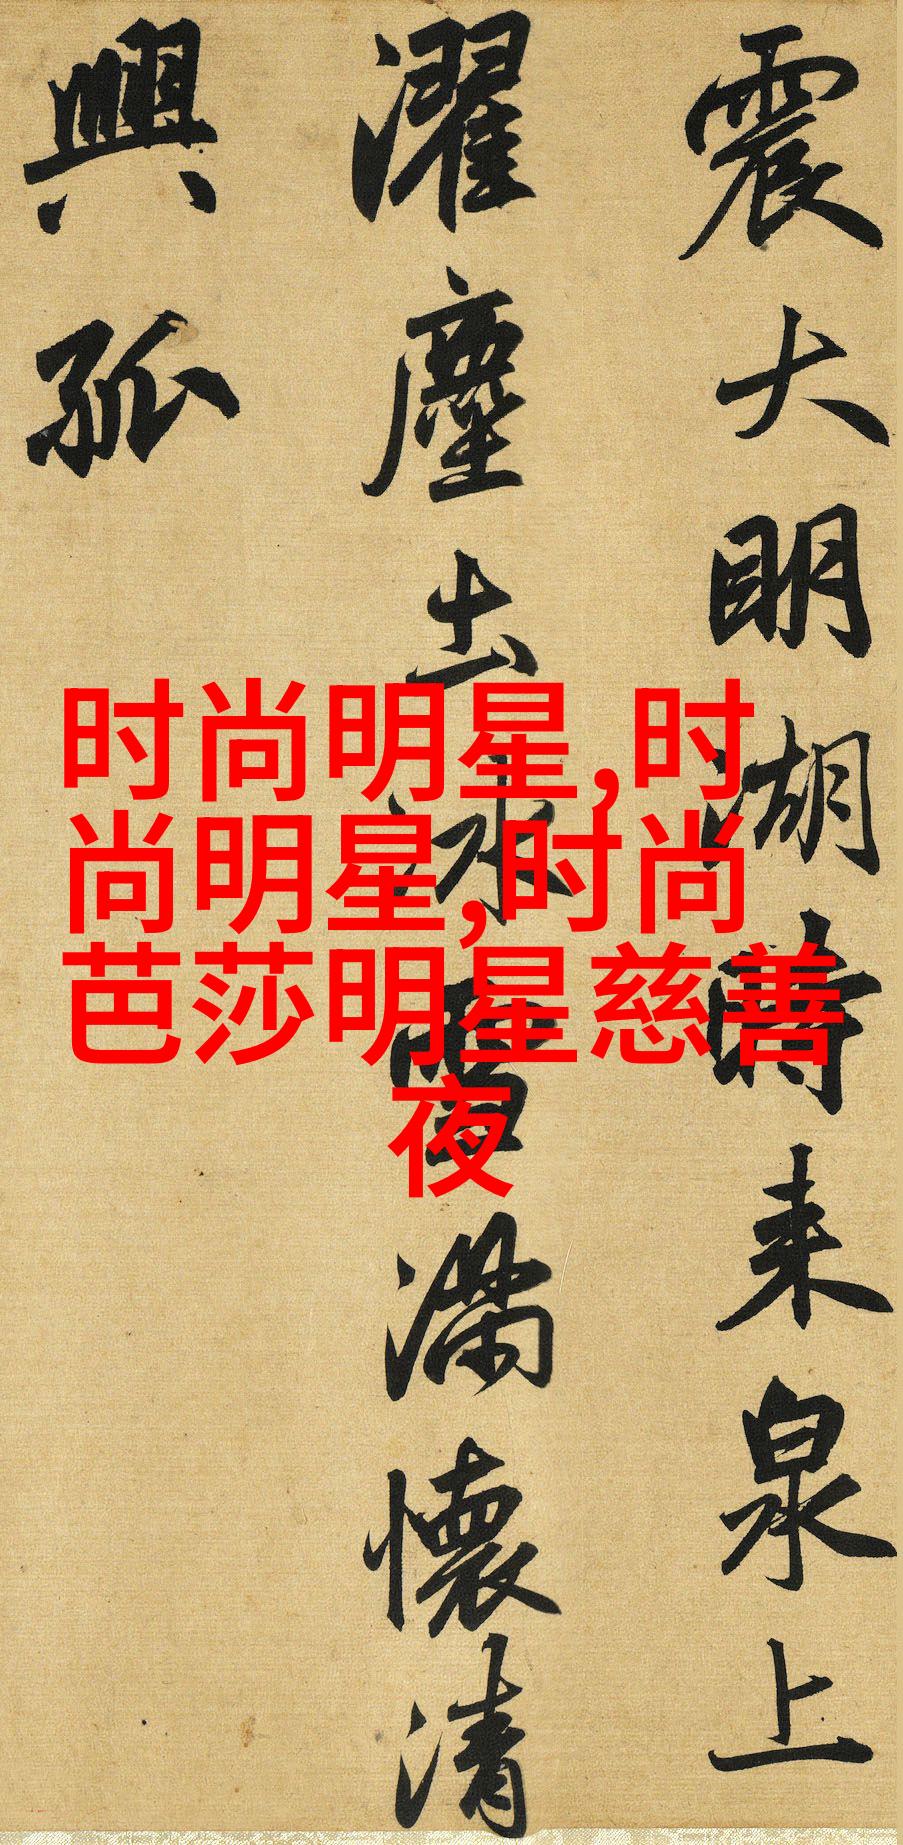 震大明湖時来泉上
濯塵土冰雪滿懷清
興孤
时尚明星,时
尚明星,时尚
芭莎明星慈善
夜